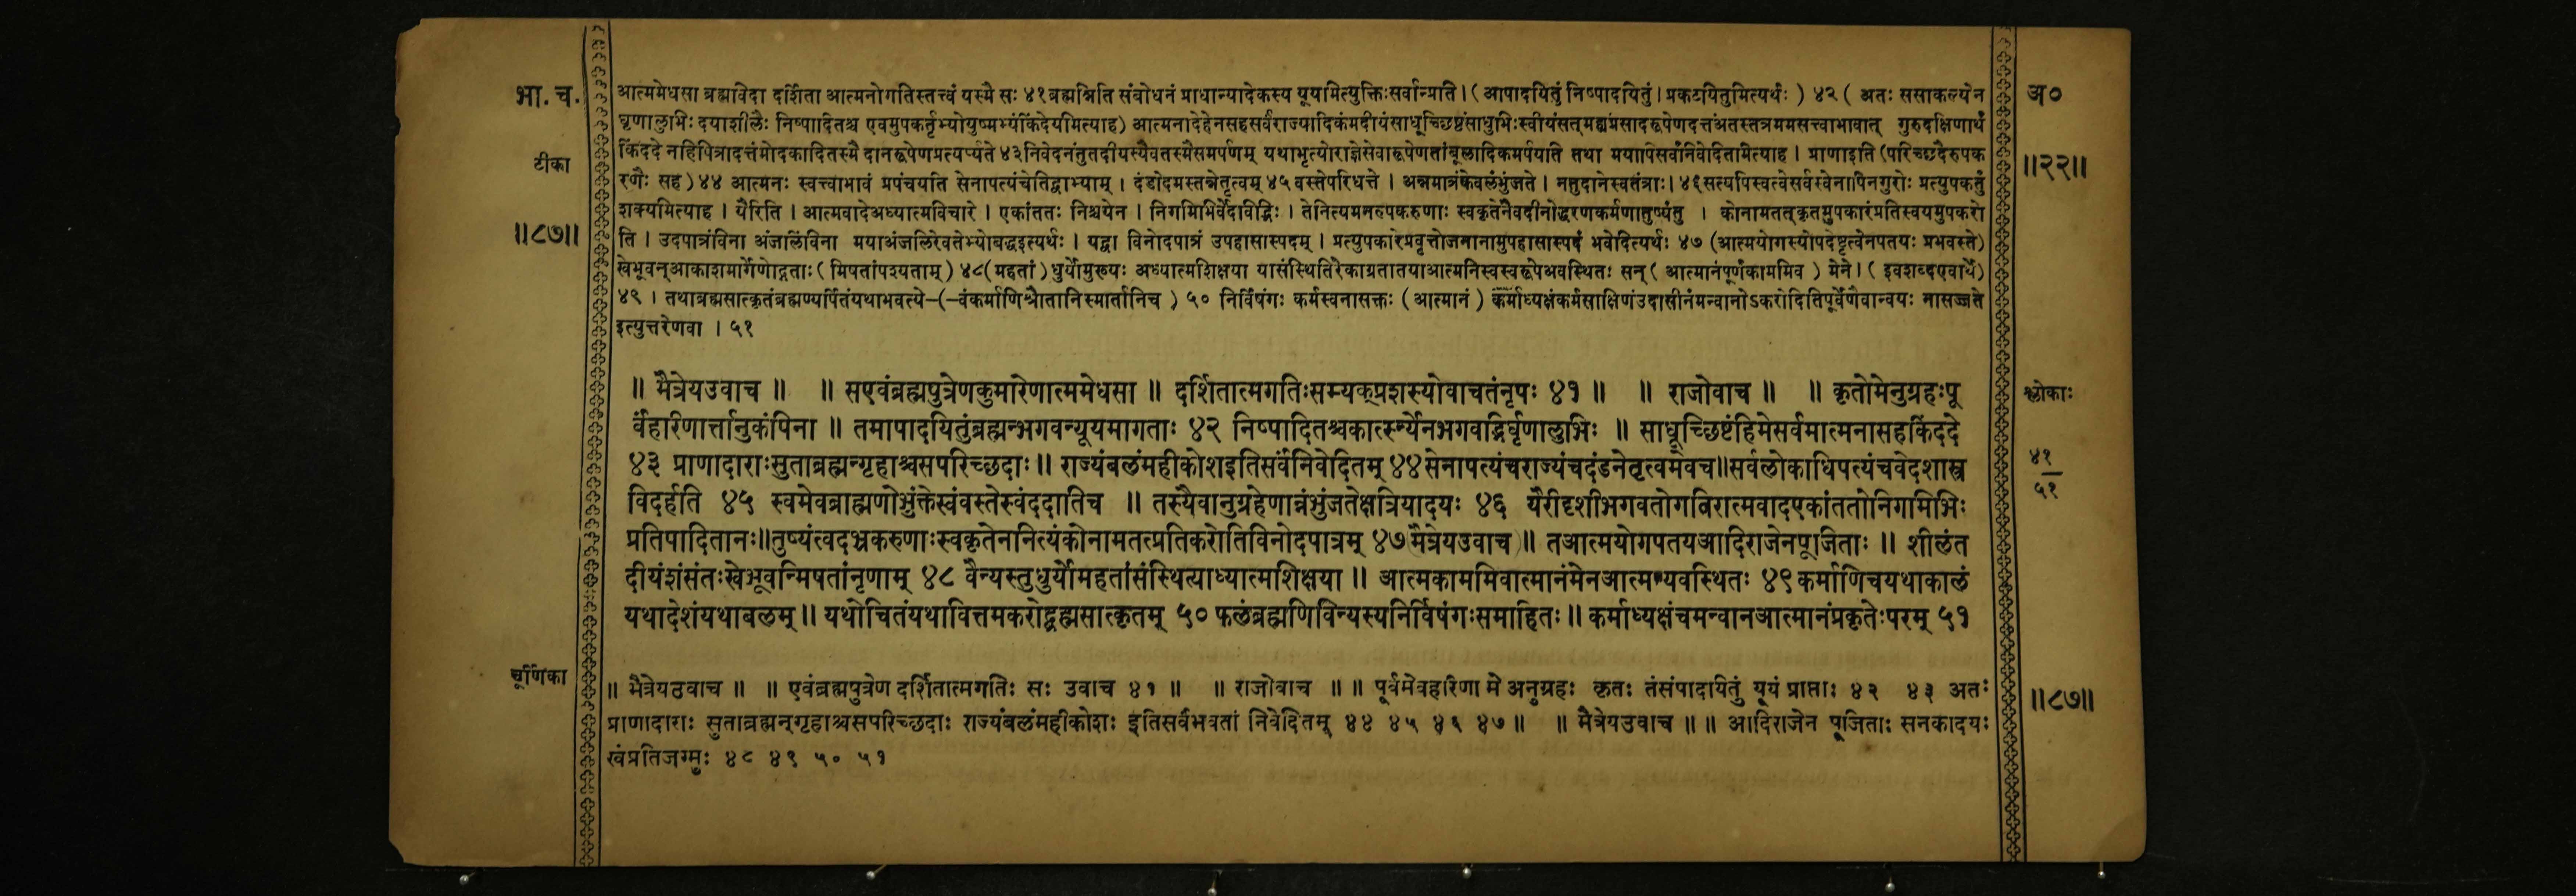 भा. च.
आत्ममेधसा ब्रह्मविदा दर्शिता आत्मनोगतिस्तत्त्वं यस्मै सः ४१ब्रह्मन्निति संबोधनं प्राधान्यादेकस्य यूयमित्युक्तिःसर्वान्प्रति । ( आपादयितुं निष्पादयितुं । प्रकटयितुमित्यर्थः ) ४२ ( अतः ससाकल्येन
अ०
घृणालुभिः दयाशीलैः निष्पादितश्च एवमुपकर्तृभ्योयुष्मभ्यंकिंदेयमित्याह) आत्मनादेहेनसहसर्वंराज्यादिकंमदीयंसाधूच्छिष्टंसाधुभिःस्वीयंसत्मह्यंप्रसादरूपेणदत्तंअतस्तत्रममसत्त्वाभावात् गुरुदक्षिणार्थं
टीका
किंददे नहिपित्रादत्तंमोदकादितस्मै दानरूपेणप्रत्यर्प्यते ४३निवेदनंतुतदीयस्यैवतस्मैसमर्पणम् यथाभृत्योराज्ञेसेवारूपेणतांबूलादिकमर्पयति तथा मयापिसर्वंनिवेदितमित्याह । प्राणाइति (परिच्छदैरुपक
॥२२॥
रणैः सह ) ४४ आत्मनः स्वत्त्वाभावं प्रपंचयति सेनापत्यंचेतिद्वाभ्याम् । दंडोदमस्तन्नेतृत्वम् ४५ वस्तेपरिधत्ते । अन्नमात्रंकेवलंभुंजते । नतुदानेस्वतंत्राः। ४६सत्यपिस्वत्वेसर्वस्वेनापिनगुरोः प्रत्युपकर्तुं
शक्यमित्याह । यैरिति । आत्मवादेअध्यात्मविचारे । एकांततः निश्चयेन । निगमिभिर्वेदविद्भिः । तेनित्यमनरुपकरुणाः स्वकृतेनैवदीनोद्धरणकर्मणातुष्यंतु । कोनामतत्कृतमुपकारंप्रतिस्वयमुपकरो
॥८७॥
ति । उदपात्रंविना अंजलिंविना मयाअंजलिरेवतेभ्योबद्धइत्यर्थः । यद्वा विनोदपात्रं उपहासास्पदम् । प्रत्युपकारेप्रवृत्तोजनानामुपहासास्पदं भवेदित्यर्थः ४७ (आत्मयोगस्योपदेष्टृत्वेनपतयः प्रभवस्ते)
खेभूवन्आकाशमार्गेणोद्गताः ( मिषतांपश्यताम् ) ४८(महतां) धुर्योमुख्यः अध्यात्मशिक्षया यासंस्थितिरेकाग्रतातयाआत्मनिस्वस्वरूपेअवस्थितः सन् ( आत्मानंपूर्णकाममिव ) मेने। ( इवशब्दएवार्थे)
४९ । तथाब्रह्मसात्कृतंब्रह्मण्यर्पितंयथाभवत्ये-(-वंकर्माणिश्रौतानिस्मार्तानिच ) ५० निर्विषंगः कर्मस्वनासक्तः (आत्मानं ) कर्माध्यक्षंकर्मसाक्षिणंउदासीनंमन्वानोऽकरोदितिपूर्वेणैवान्वयः नासज्जते
इत्युत्तरेणवा । ५१
॥ मैत्रेयउवाच ॥ ॥ सएवंब्रह्मपुत्रेणकुमारेणात्ममेधसा ॥ दर्शितात्मगतिःसम्यक्प्रशस्योवाचतंनृपः ४१ ॥ ॥ राजोवाच ॥ ॥ कृतोमेनुग्रहःपू
श्लोकाः
र्वंहरिणार्त्तानुकंपिना ॥ तमापादयितुंब्रह्मन्भगवन्यूयमागताः ४२ निष्पादितश्चकात्स्न्र्येनभगवद्भिर्घृणालुभिः ॥ साधूच्छिष्टंहिमेसर्वमात्मनासहकिंददे
४३ प्राणादाराःसुताब्रह्मन्गृहाश्चसपरिच्छदाः॥ राज्यंबलंमहीकोशइतिसर्वंनिवोदितम् ४४सेनापत्यंचराज्यंचदंडनेतृत्वमेवच॥सर्वलोकाधिपत्यंचवेदशास्त्र
४१
५१
विदर्हति ४५ स्वमेवब्राह्मणोभुंक्तेस्वंवस्तेस्वंददातिच ॥ तस्यैवानुग्रहेणान्नंभुंजतेक्षत्रियादयः ४६ यैरीदृशीभगवतोगतिरात्मवादएकांततोनिगमिभिः
प्रतिपादितानः॥तुष्यंत्वदभ्रकरुणाःस्वकृतेननित्यंकोनामतत्प्रतिकरोतिविनोदपात्रम् ४७(मैत्रेयउवाच॥ तआत्मयोगपतयआदिराजेनपूजिताः ॥ शीलंत
दीयंशंसंतःखेभूवन्मिषतांनृणाम् ४८ वैन्यस्तुधुर्योमहतांसंस्थित्याध्यात्मशिक्षया ॥ आत्मकाममिवात्मानंमेनआत्मन्यवस्थितः ४९कर्माणिचयथाकालं
यथादेशंयथाबलम्॥ यथोचितंयथावित्तमकरोद्ब्रह्मसात्कृतम् ५० फलंब्रह्मणिविन्यस्यनिर्विषंगःसमाहितः॥ कर्माध्यक्षंचमन्वानआत्मानंप्रकृतेःपरम् ५१
चूर्णिका
॥ मैत्रेयउवाच ॥ ॥ एवंब्रह्मपुत्रेण दर्शितात्मगतिः सः उवाच ४१ ॥ ॥ राजोवाच ॥ ॥ पूर्वमेवहरिणा मे अनुग्रहः कृतः तंसंपादयितुं यूयं प्राप्ताः ४२ ४३ अतः
॥८७॥
प्राणादाराः सुताब्रह्मन्गृहाश्चसपरिच्छदाः राज्यंबलंमहीकोशः इतिसर्वंभवतां निवेदितम् ४४ ४५ ४६ ४७ ॥ ॥ मैत्रेयउवाच ॥ ॥ आदिराजेन पूजिताः सनकादयः
खंप्रतिजग्मुः ४८ ४९ ५० ५१